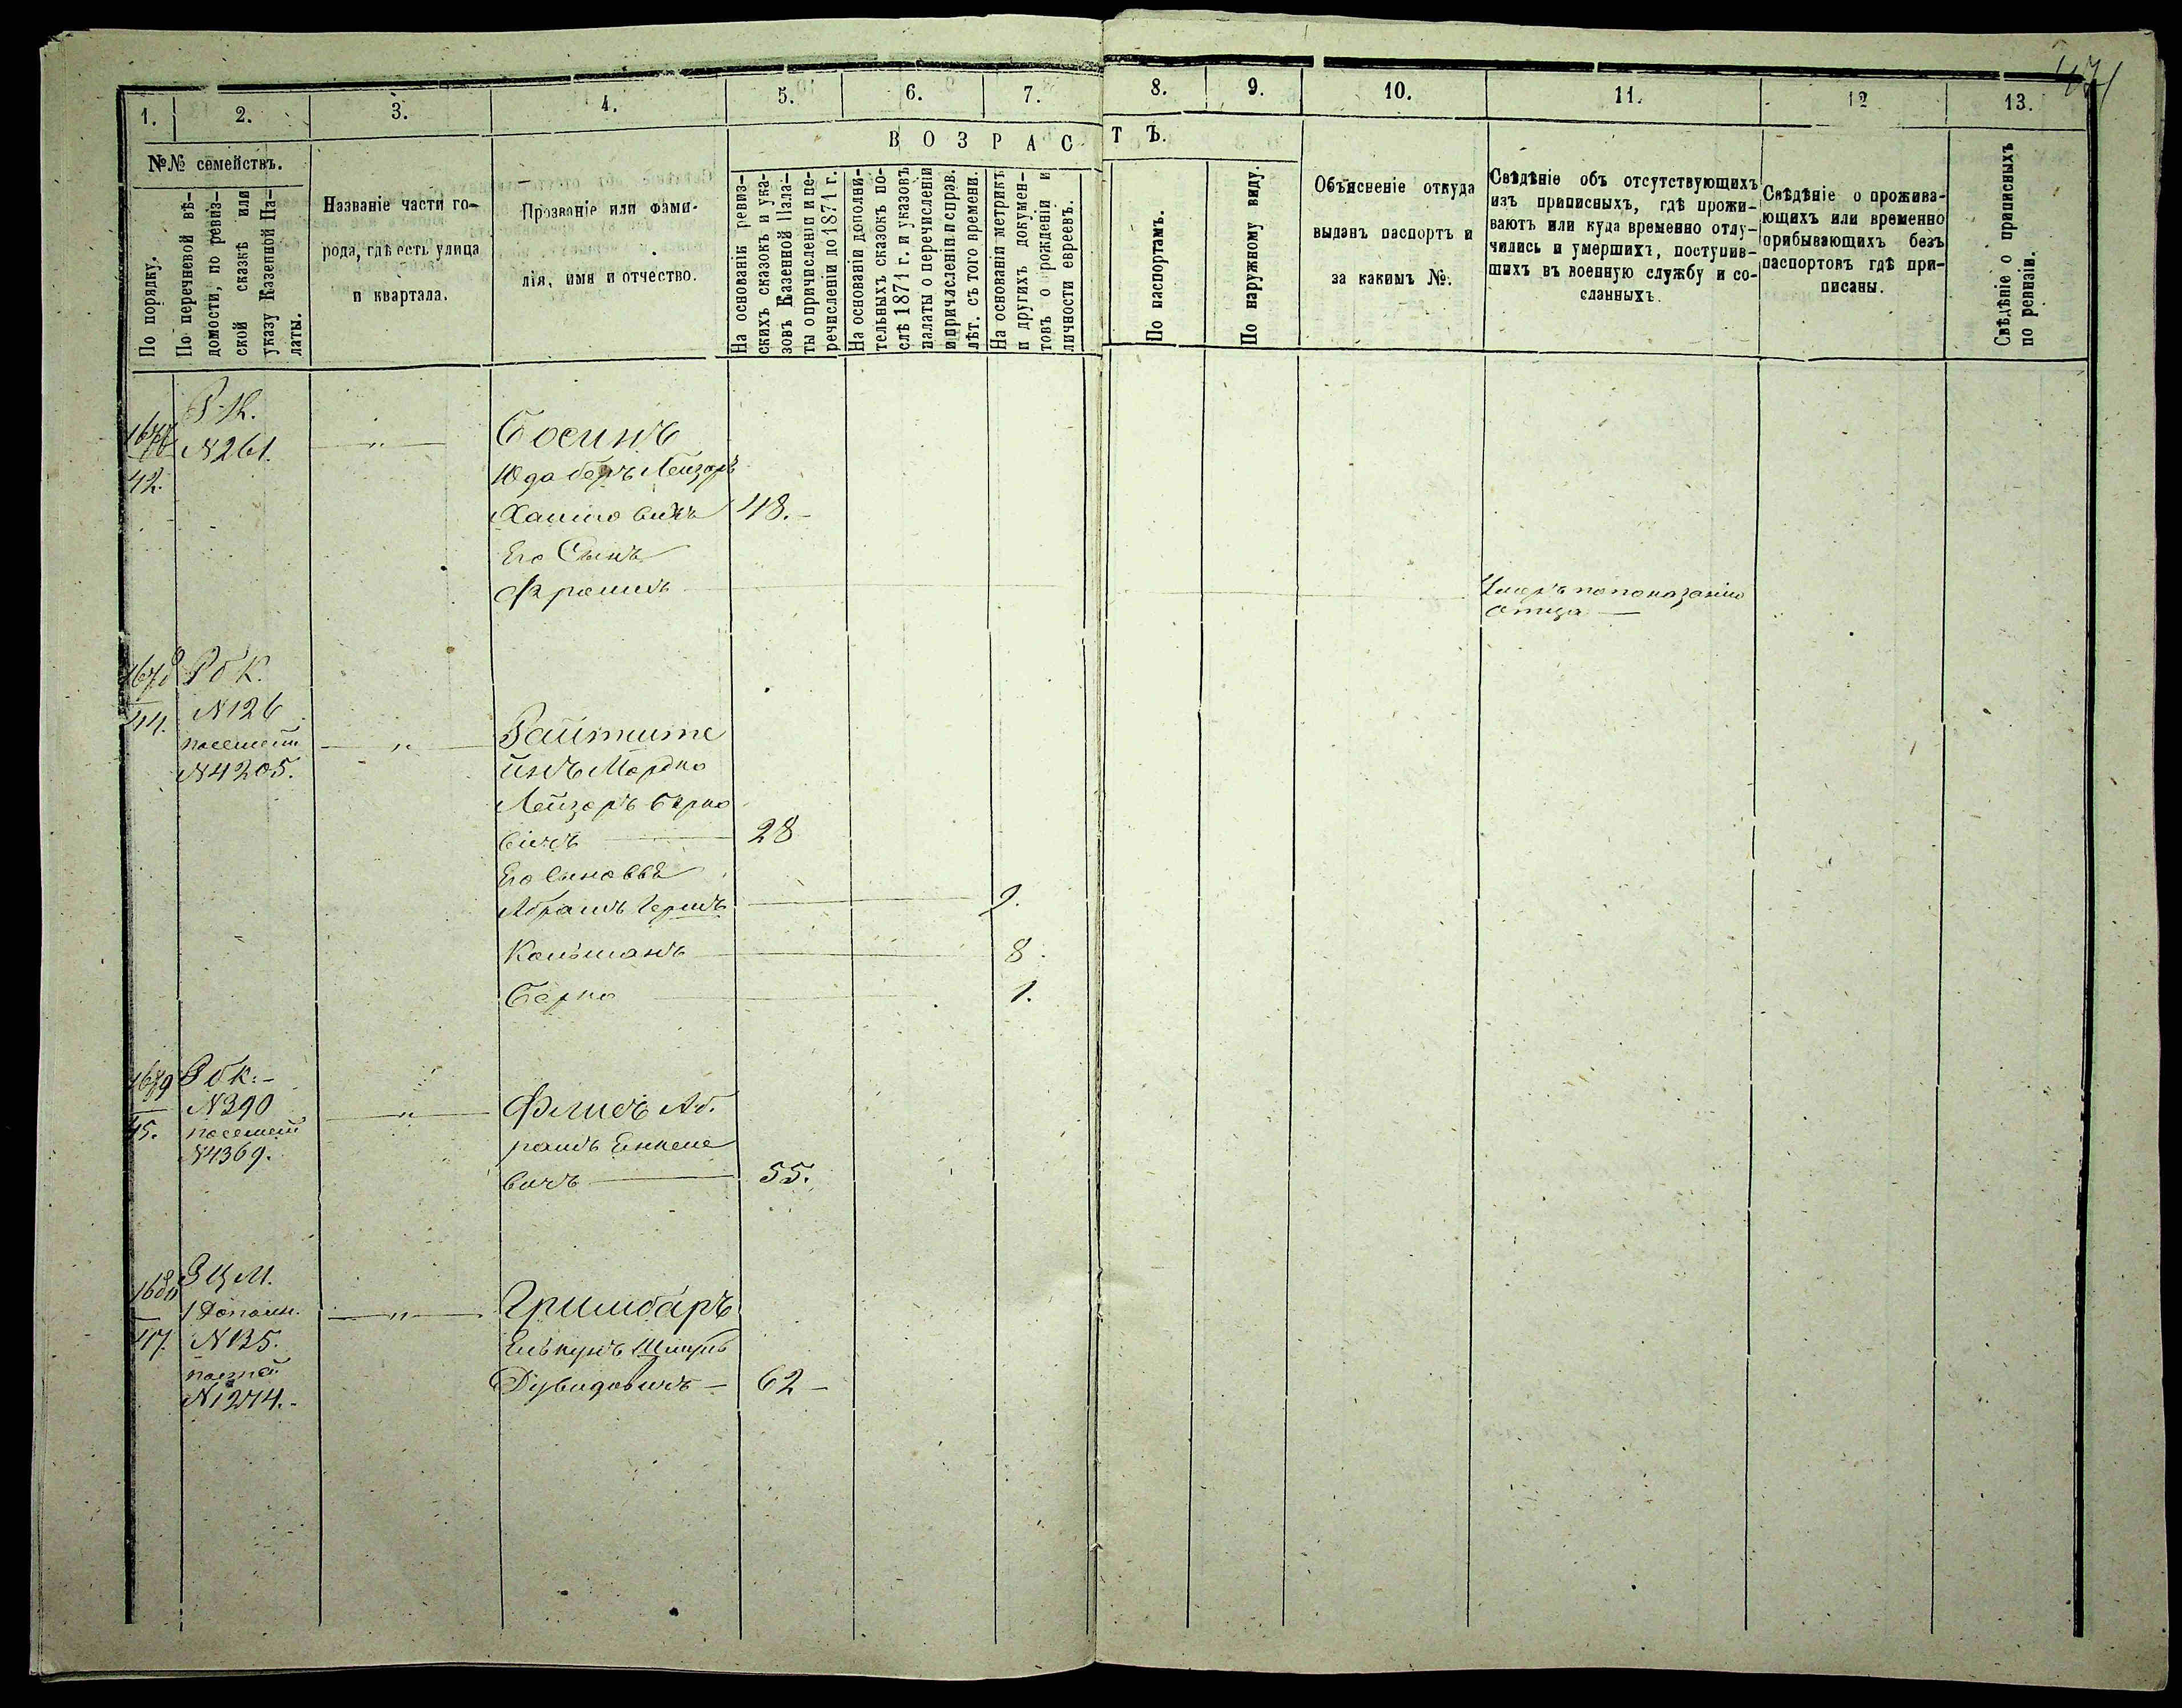 471
1. 2. 3. 4. 5. 6. 7. 8. 9. 10. 11. 12 13.
№№ семействъ.
По порядку.
По перечневой вѣ-
домости, по ревиз-
ской сказкѣ или
указу Казенной Па-
латы.
Названіе части го-
рода, гдѣ есть улица
и квартала.
Прозваніе или фами-
лія, имя и отчество.
ВОЗРАСТЪ.
На основаніи ревиз-
скихъ сказокъ и ука-
зовъ Казенной Пала-
ты о причисленіи и пе-
речисленіи по 1871 г.
На основаніи дополни-
тельныхъ сказокъ по-
слѣ 1871 г. и указовъ
палаты о перечисленіи
и причисленіи и справ.
лѣт. съ того времени.
На основаніи метрикъ
и другихъ докумен-
товъ о рожденіи и
личности евреевъ.
По паспортамъ.
По наружному виду.
Объясненіе откуда
выданъ паспортъ и
за какимъ №.
Свѣдѣніе объ отсутствующихъ
изъ приписныхъ, гдѣ прожи-
ваютъ или куда временно отлу-
чились и умершихъ, поступив-
шихъ въ военную службу и со-
сланныхъ.
Свѣдѣніе о прожива-
ющихъ или временно
прибывающихъ безъ
паспортовъ гдѣ при-
писаны.
Свѣдѣніе о приписныхъ
по ревизіи.
42.
N 261. „
Юда Беръ Лейзоръ
Хаимовичъ 48.-
Его Сынъ
Фроимъ
Умеръ по показанію
отца —
1678 Р б К.
44. N 126
посемейн
N 4205. „
Райтште
инъ Мордко
Лейзоръ Берко
вичъ 28
Его Сыновья
Абрамъ Гершъ 9.
Кальманъ 8.
Берко 1.
1679 Р б К.-
45. N 390
посемей
N 4369. „
Флисъ Аб.
рамъ Енкеле
вичъ 55.
1680 З Ц М.
47. 1 Дополн.
N 135.
N 1274.- „
Гримбаръ
Елькунъ
Дувидовичъ - 62 -